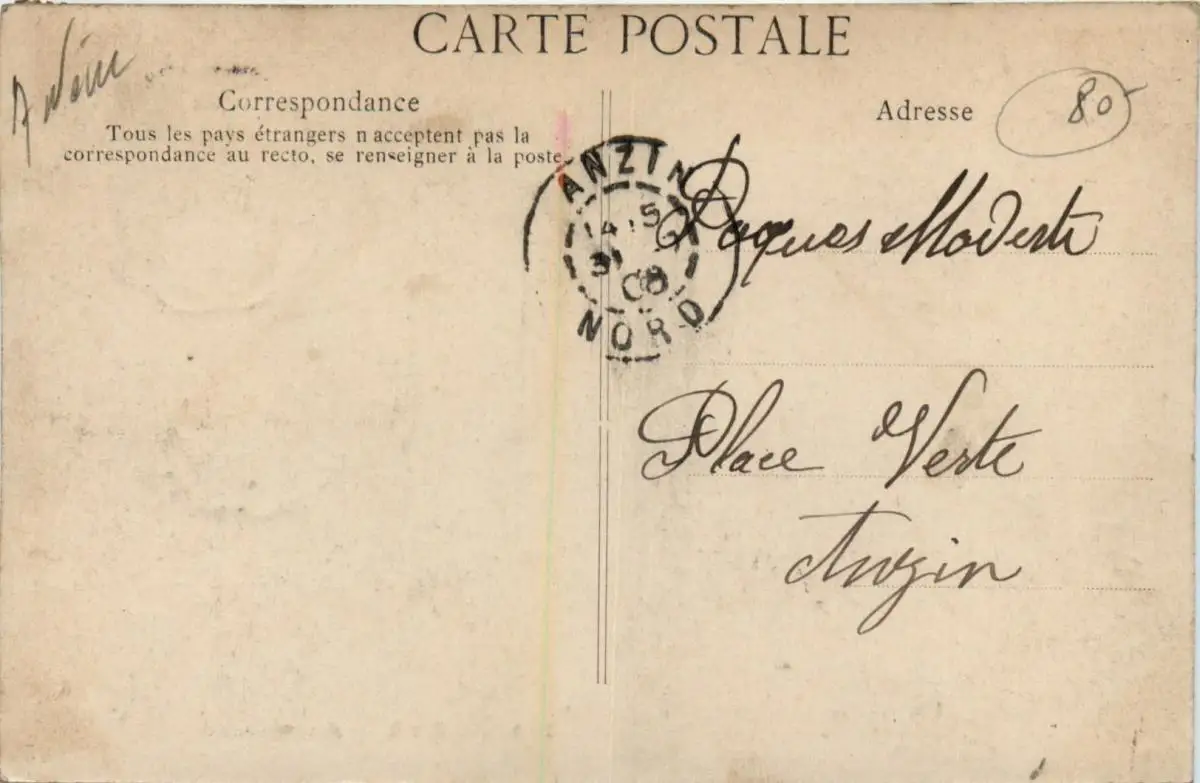 CARTE POSTALE
Correspondance
Tous les pays étrangers n acceptent pas la
correspondance au recto, se renseigner à la poste
Adresse
80
ANZIN
31
08
NORD
Paques Modeste
Place Verte
Anzin